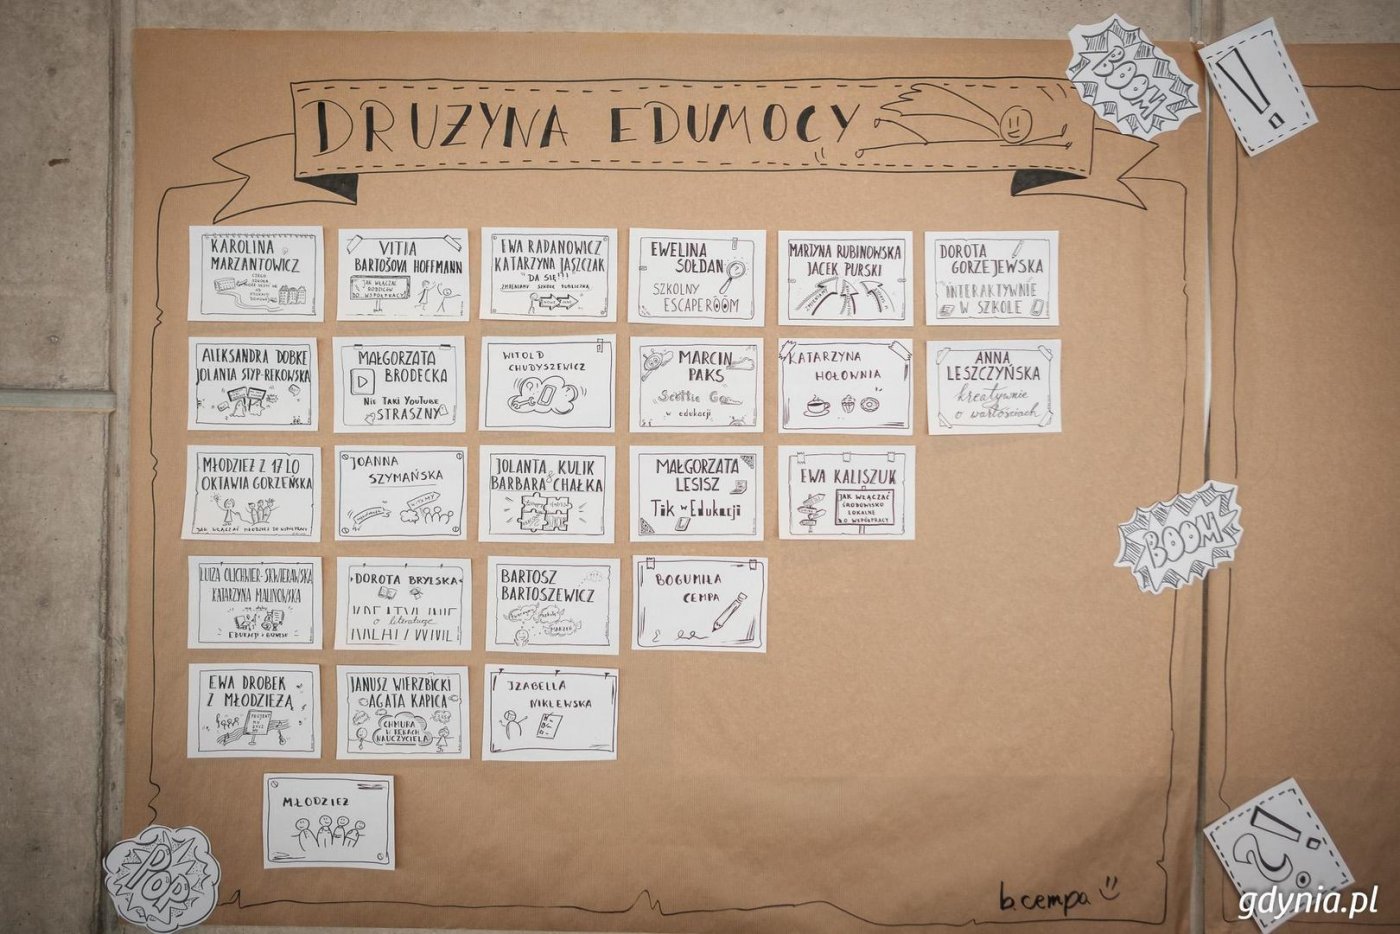 DRUŻYNA EDUMOCY
BOOM!
!
KAROLINA
MARZANTOWICZ
VITIA
BARTOŠOVA HOFFMANN
JAK WŁĄCZAĆ
RODZICÓW
DO WSPÓŁPRACY
EWA RADANOWICZ
KATARZYNA JASZCZAK
"DA SIĘ!!!
ZMIENIAMY SZKOŁĘ PUBLICZNĄ
EWELINA
SOŁDAN
SZKOLNY
ESCAPEROOM
MARTYNA RUBINOWSKA
JACEK PURSKI
DOROTA
GORZEJEWSKA
INTERAKTYWNIE
W SZKOLE
ALEKSANDRA DOBKE
JOLANTA STYP-REKOWSKA
MAŁGORZATA
BRODECKA
Nie TAKI YouTube
STRASZNY
WITOLD
CHUDYSZEWICZ
MARCIN
PAKS
Scottie Go
w edukacji
KATARZYNA
HOŁOWNIA
ANNA
LESZCZYŃSKA
kreatywnie
o wartościach
MŁODZIEŻ Z 17 LO
OKTAWIA GORZEŃSKA
JAK WŁĄCZAĆ MŁODZIEŻ DO WSPÓŁPRACY
JOANNA
SZYMAŃSKA
WITAMY
JOLANTA KULIK
& BARBARA CHAŁKA
MAŁGORZATA
LESISZ
Tik w Edukacji
EWA KALISZUK
JAK WŁĄCZAĆ
ŚRODOWISKO
LOKALNE
DO WSPÓŁPRACY
BOOM!
LUIZA OLICHWIER-SKWIERAWSKA
KATARZYNA MALINOWSKA
EDUKACJI I BIZNESIE
DOROTA BRYLSKA
o literaturze
BARTOSZ
BARTOSZEWICZ
BOGUMIŁA
CEMPA
EWA DROBEK
Z MŁODZIEŻĄ
JANUSZ WIERZBICKI
AGATA KAPICA
CHMURA
W RĘKACH
NAUCZYCIELA
IZABELLA
NIKLEWSKA
MŁODZIEŻ
POP
b.cempa
?!
gdynia.pl